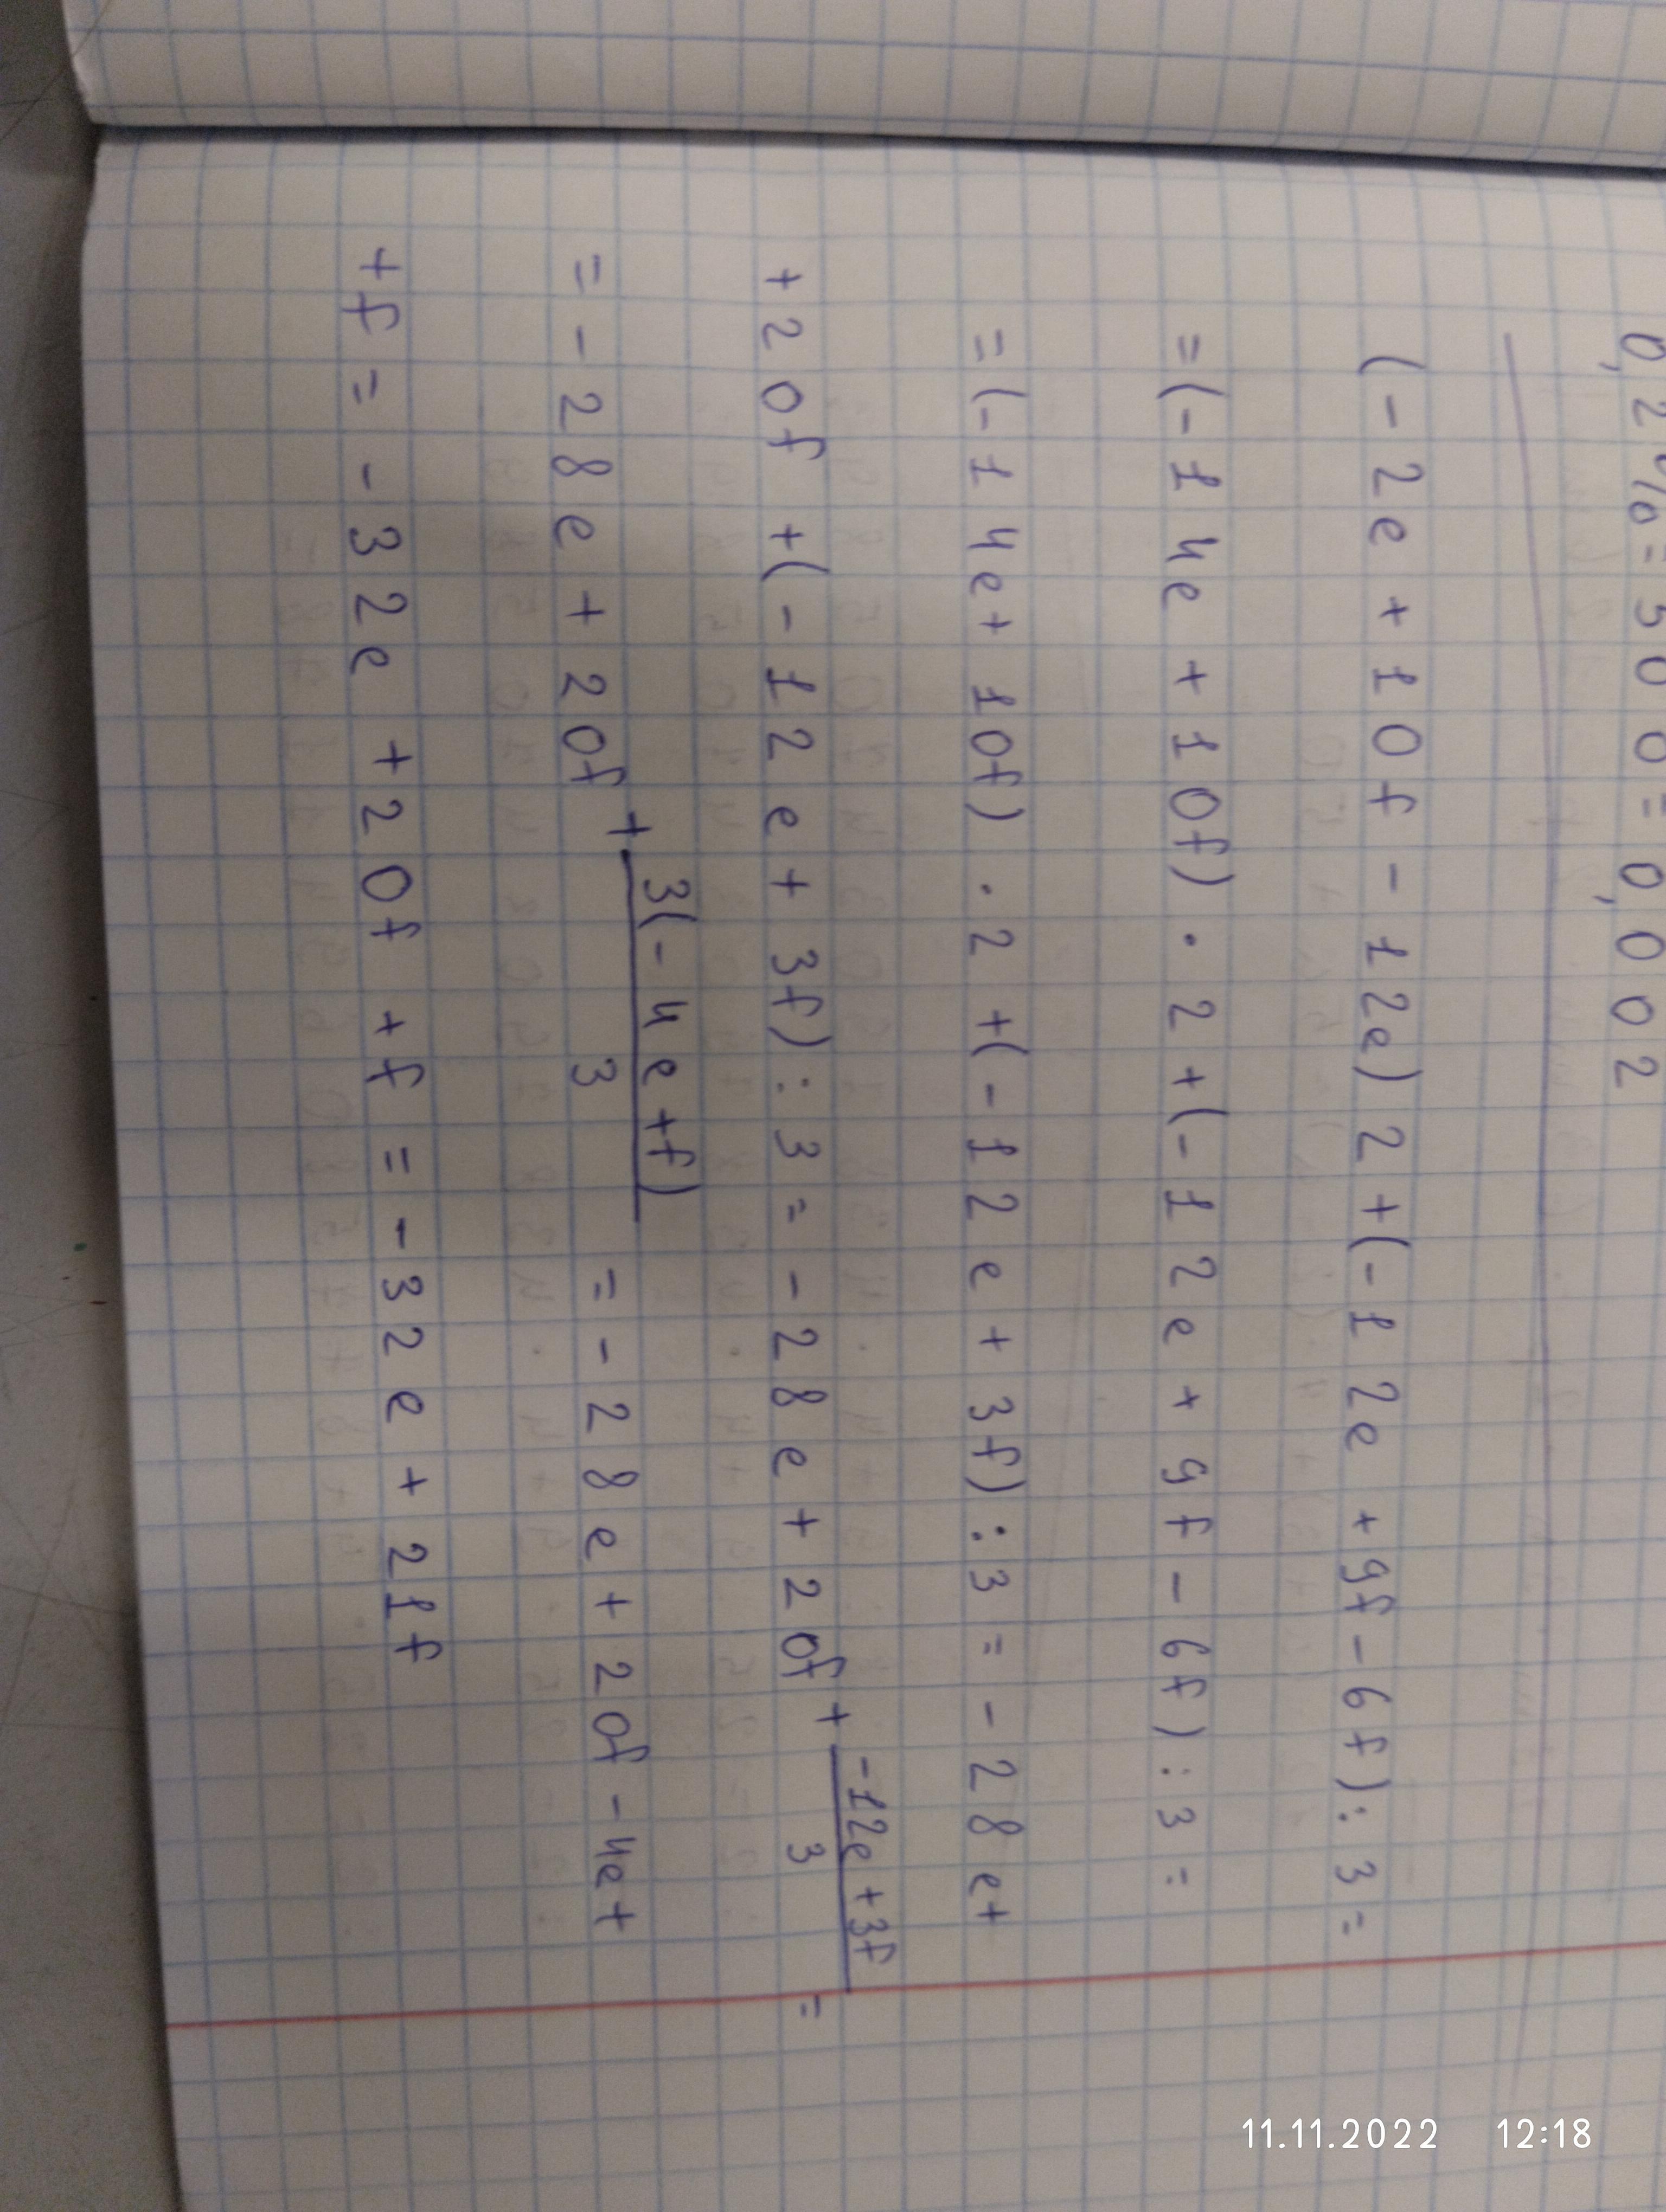 0,2%=500=0,002
(-2e+10f-12e)2+(-12e+9f-6f):3=
=(-14e+10f)·2+(-12e+9f-6f):3=
=(-14e+10f)·2+(-12e+3f):3=-28e+
+20f+(-12e+3f):3=-28e+20f+\frac{-12e+3f}{3}=
=-28e+20f+\frac{3(-4e+f)}{3}=-28e+20f-4e+
+f=-32e+20f+f=-32e+21f
11.11.2022 12:18